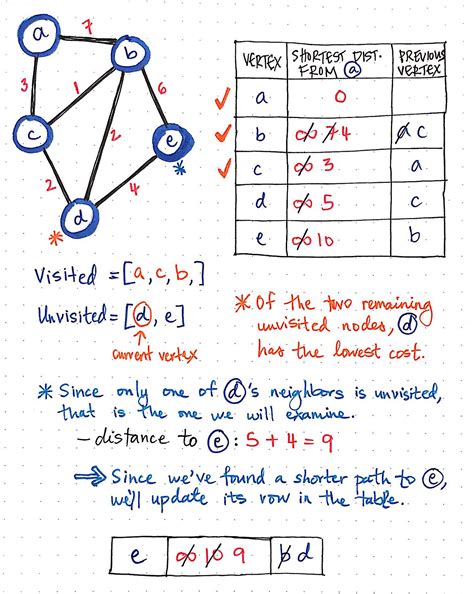 a
7
b
3
1
6
c
2
e
*
2
4
d
*
VERTEX | SHORTEST DIST. FROM a | PREVIOUS VERTEX
✓ a | 0 |
✓ b | ∞ 7 4 | a c
✓ c | ∞ 3 | a
d | ∞ 5 | c
e | ∞ 10 | b
Visited = [a, c, b, ]
Unvisited = [d, e]
↑
current vertex
* Of the two remaining
unvisited nodes, d
has the lowest cost.
* Since only one of d's neighbors is unvisited,
that is the one we will examine.
- distance to e : 5 + 4 = 9
⇒ Since we've found a shorter path to e,
we'll update its row in the table.
e | ∞ 10 9 | b d